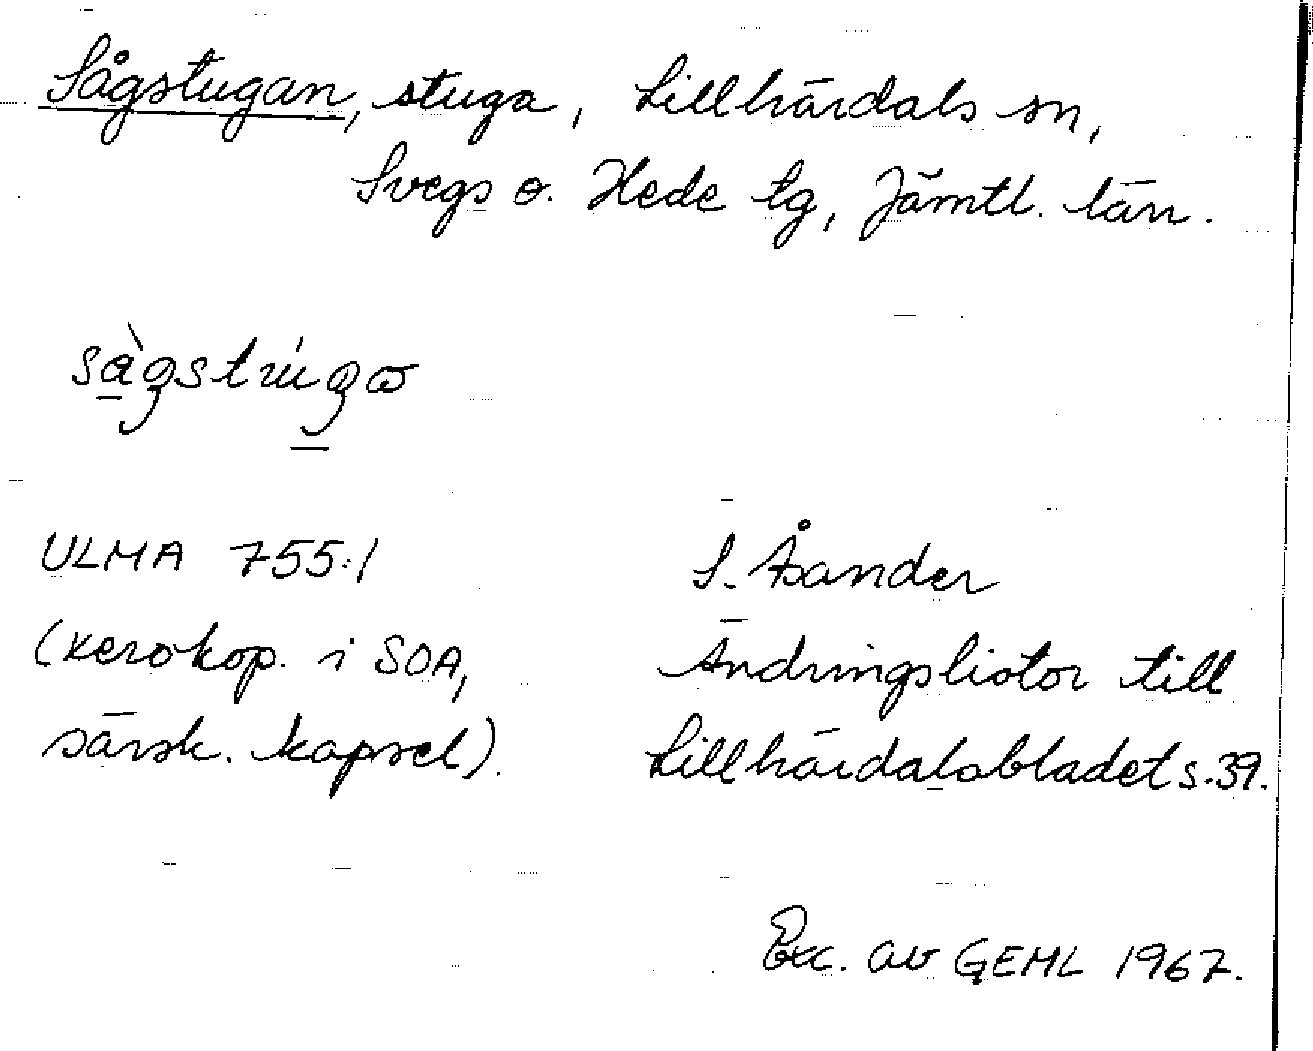 Sågstugan, stuga, Lillhärdals sn,
Svegs o. Hede tg, Jämtl. län.
ULMA 755:1
(xerokop. i SOA,
särsk. kapsel).
S. Åsander
Ändringslistor till
Lillhärdalsbladet s. 39.
Exc. av GEHL 1967.